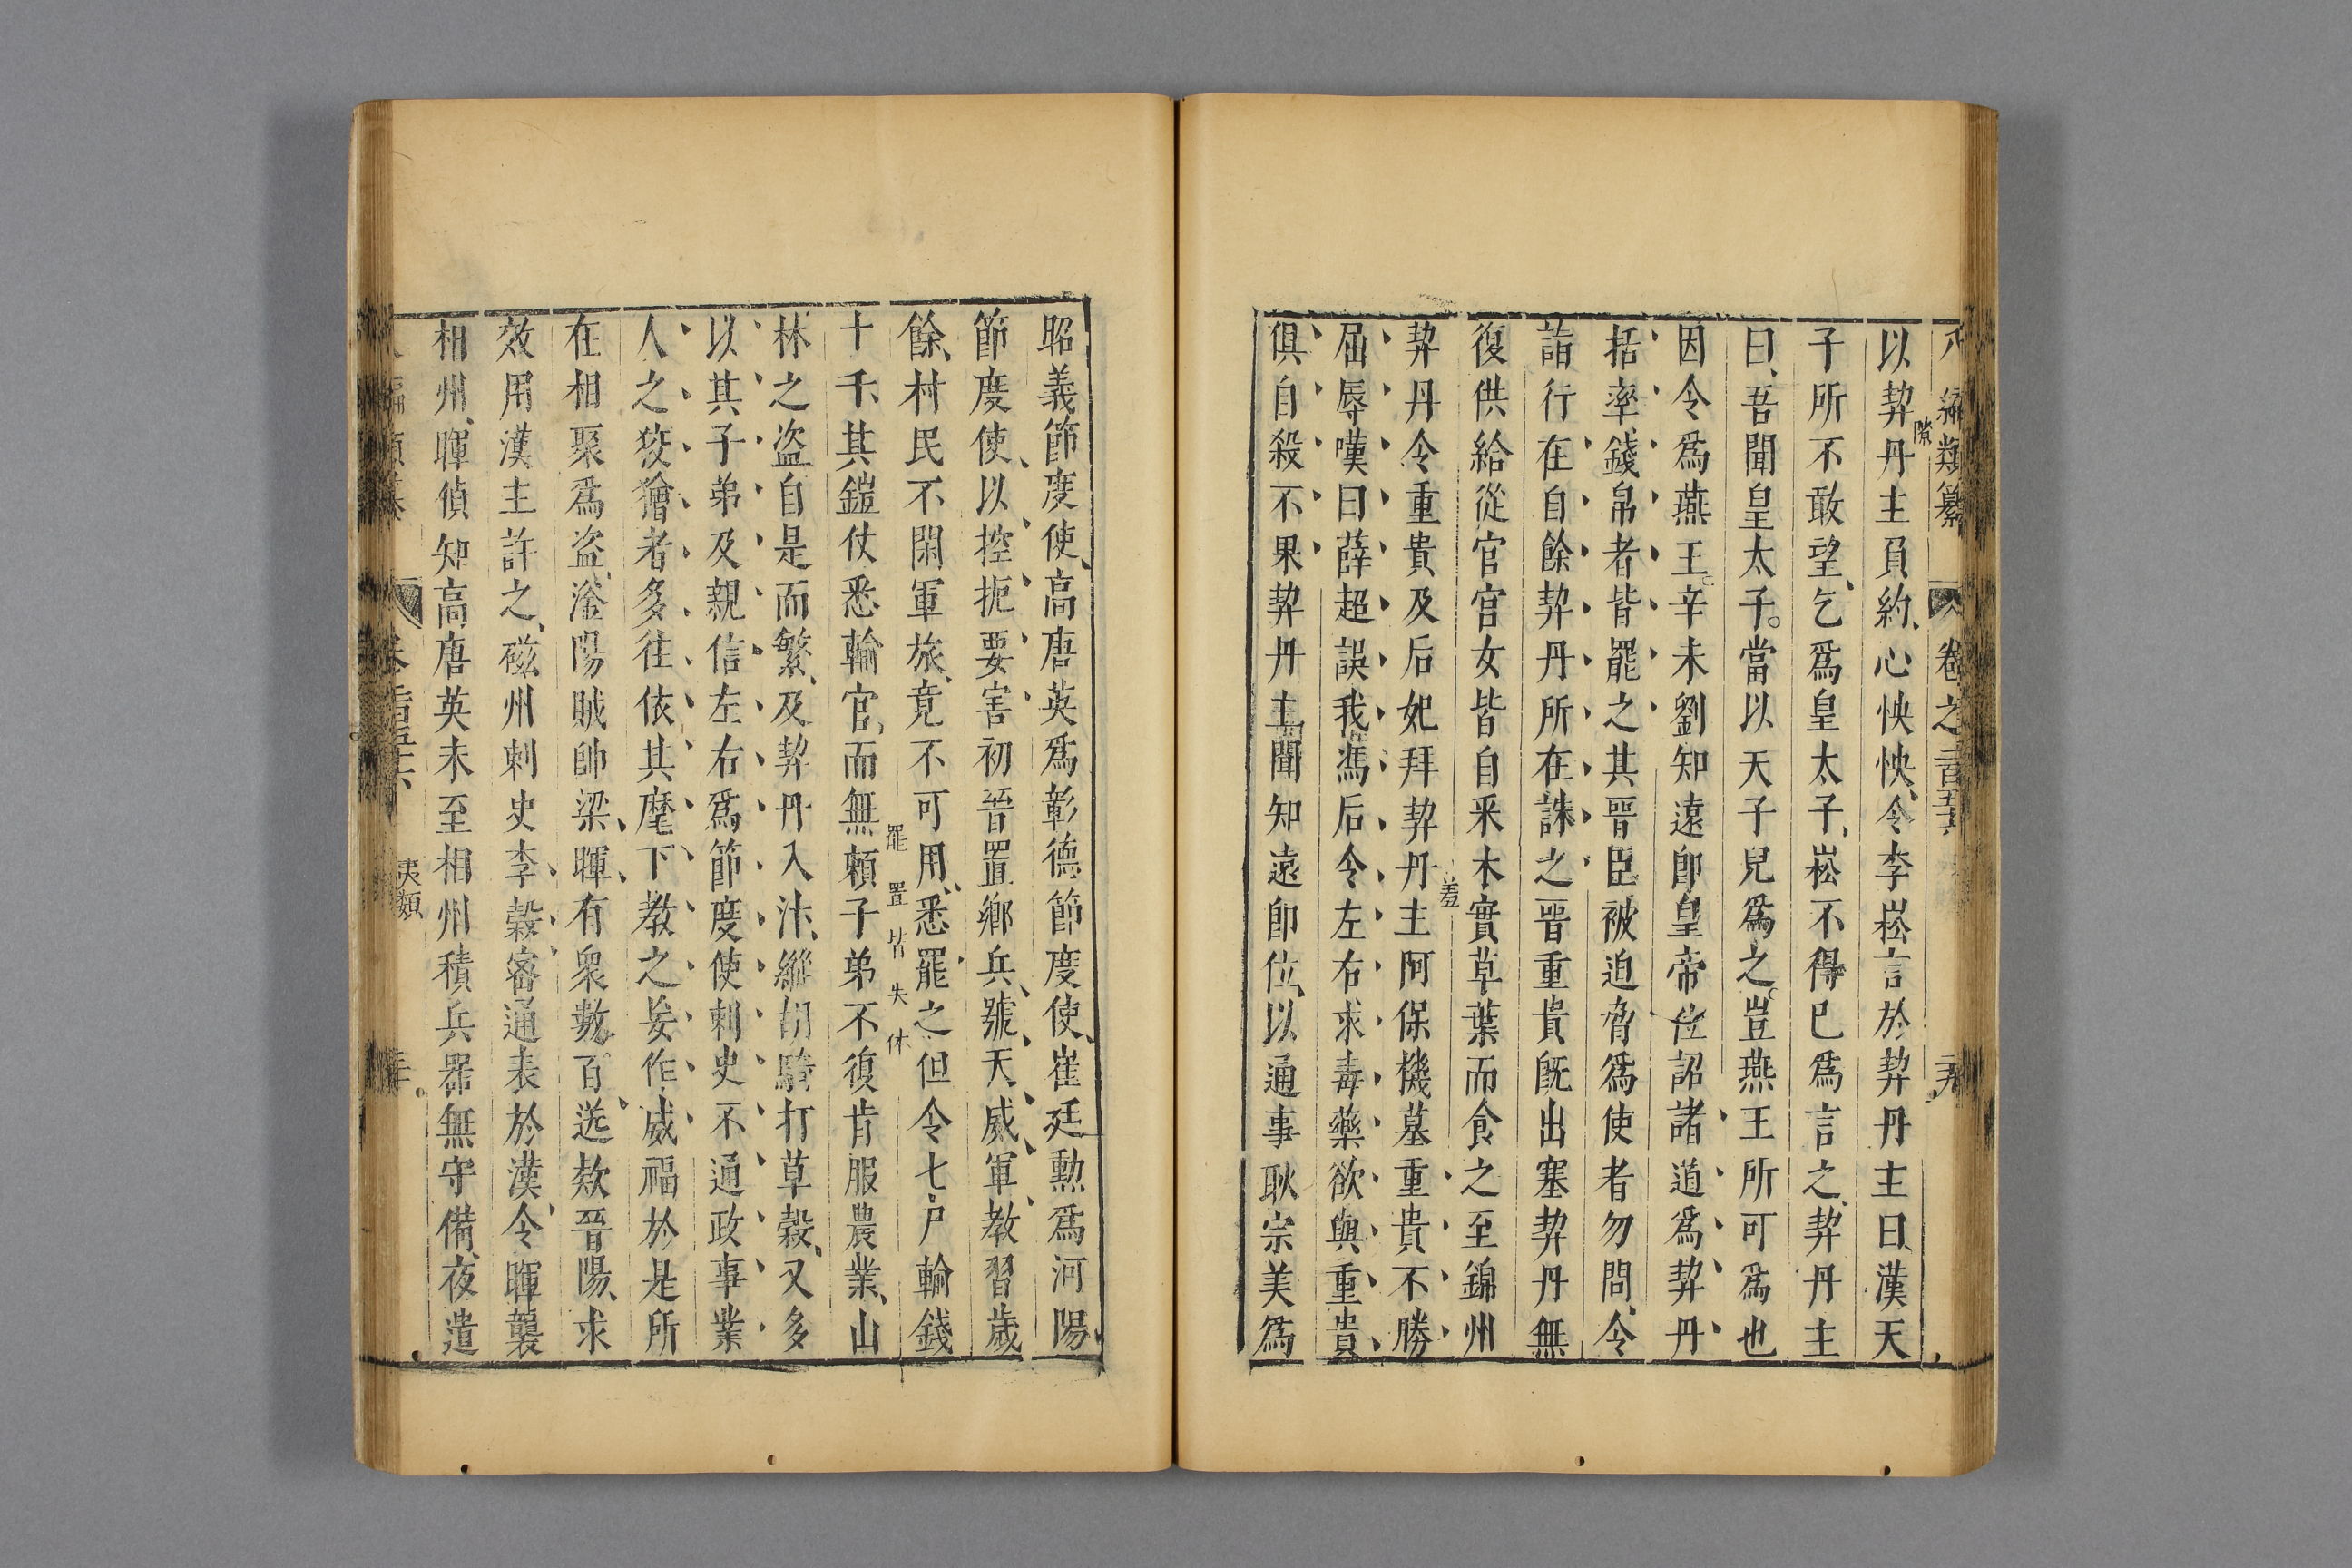 以契丹主負約、心怏怏、令李崧言於契丹主曰、漢天
隙
子所不敢望、乞爲皇太子、崧不得已爲言之、契丹主
曰、吾聞皇太子。當以天子兒爲之。豈燕王所可爲也
因令爲燕王。辛未劉知遠卽皇帝位詔諸道爲契丹
括率錢帛者皆罷之其晉臣被迫脅爲使者勿問、令
詣行在自餘契丹所在誅之晉重貴旣出塞契丹無
復供給從官宮女皆自采木實草葉而食之至錦州
契丹令重貴及后妃拜契丹主阿保機墓重貴不勝
羞
屈辱嘆曰薛超誤我馮后令左右求毒藥欲與重貴
俱自殺不果契丹主聞知遠卽位、以通事耿宗美爲
昭義節度使、高唐英爲彰德節度使、崔廷勲爲河陽
節度使、以控扼要害初晉置鄉兵、號天威軍、教習歲
餘、村民不閑軍旅、竟不可用、悉罷之但令七戶輸錢
罷置皆失休
十千、其鎧仗悉輸官、而無賴子弟不復肯服農業、山
林之盗自是而繁、及契丹入汴、縱胡騎打草穀、又多
以其子弟及親信左右爲節度使刺史不通政事業
人之狡獪者多往依其麾下教之妄作威福於是所
在相聚爲盗、滏陽賊帥梁暉有衆數百送欵晉陽、求
效用漢主許之、磁州刺史李穀密通表於漢、令暉襲
相州、暉偵知高唐英未至相州積兵器無守備、夜遣